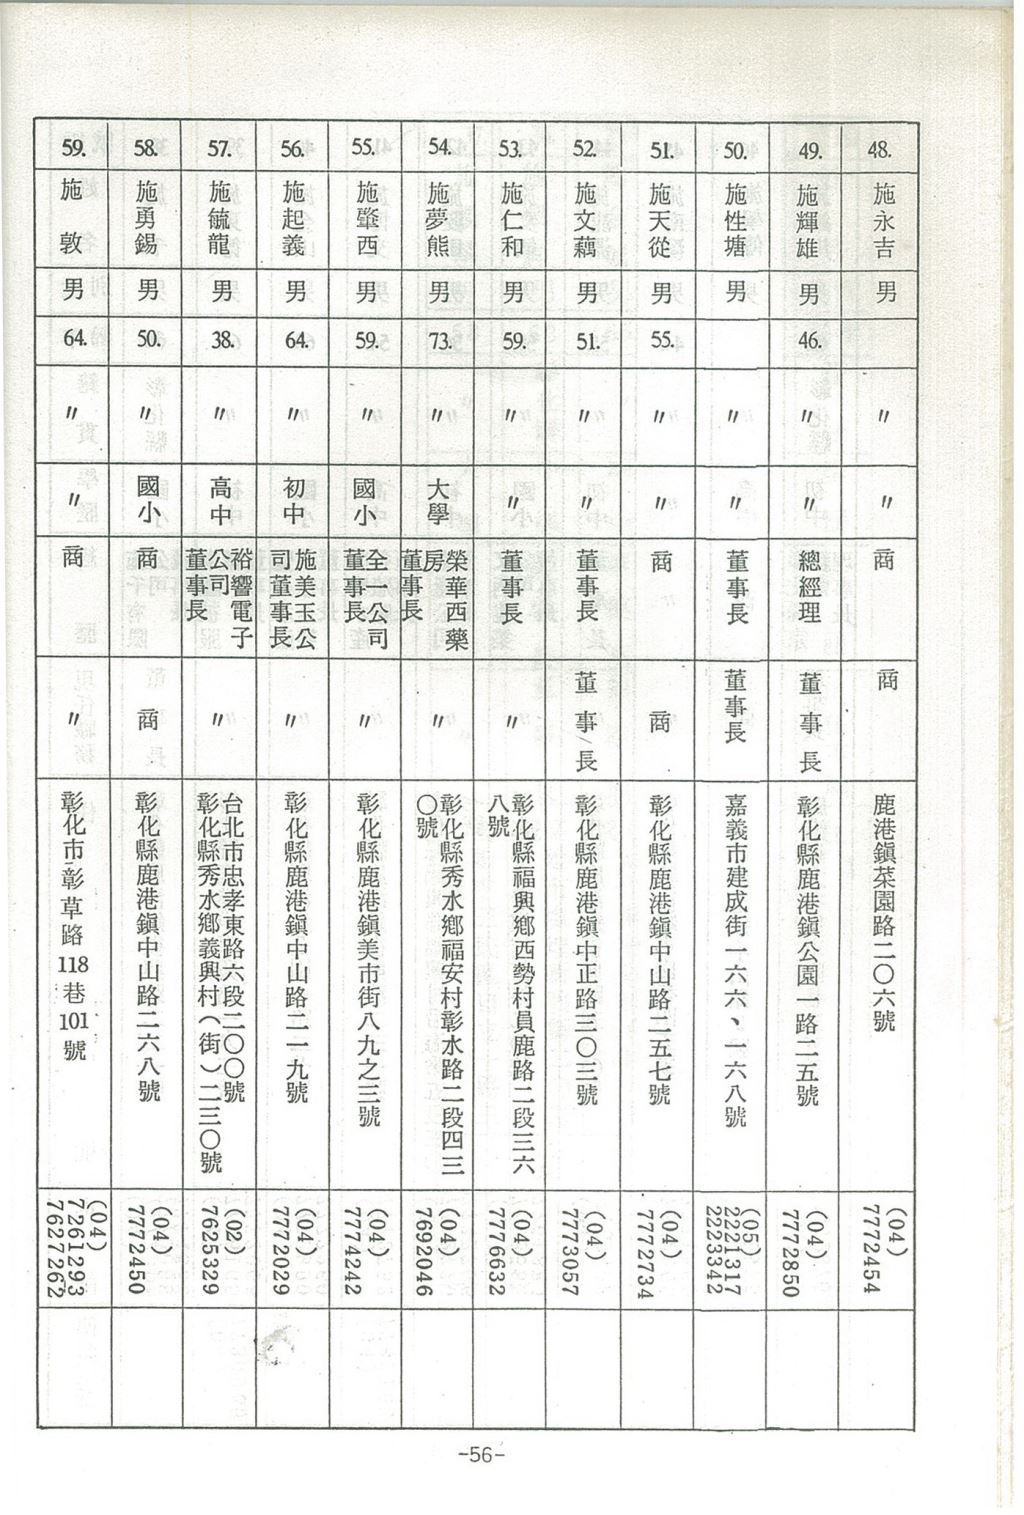 48.
施永吉
男
〃
〃
商
商
鹿港鎮菜園路二〇六號
(04)
7772454
49.
施輝雄
男
46.
〃
〃
總經理
董事長
彰化縣鹿港鎮公園一路二五號
(04)
7772850
50.
施性塘
男
〃
〃
董事長
董事長
嘉義市建成街一六六、一六八號
(05)
2221317
2223342
51.
施天從
男
55.
〃
〃
商
商
彰化縣鹿港鎮中山路二五七號
(04)
7772734
52.
施文藕
男
51.
〃
〃
董事長
董事長
彰化縣鹿港鎮中正路三〇三號
(04)
7773057
53.
施仁和
男
59.
〃
〃
董事長
〃
彰化縣福興鄉西勢村員鹿路二段三六
八號
(04)
7776632
54.
施夢熊
男
73.
〃
大學
榮華西藥
房
董事長
〃
彰化縣秀水鄉福安村彰水路二段四三
〇號
(04)
7692046
55.
施肇西
男
59.
〃
國小
全一公司
董事長
〃
彰化縣鹿港鎮美市街八九之三號
(04)
7774242
56.
施起義
男
64.
〃
初中
施美玉公
司董事長
〃
彰化縣鹿港鎮中山路二一九號
(04)
7772029
57.
施毓龍
男
38.
〃
高中
裕響電子
公司
董事長
〃
台北市忠孝東路六段二〇〇號
彰化縣秀水鄉義興村(街)二三〇號
(02)
7625329
58.
施勇錫
男
50.
〃
國小
商
商
彰化縣鹿港鎮中山路二六八號
(04)
7772450
59.
施敦
男
64.
〃
〃
商
〃
彰化市彰草路118巷101號
(04)
7261293
7627262
-56-